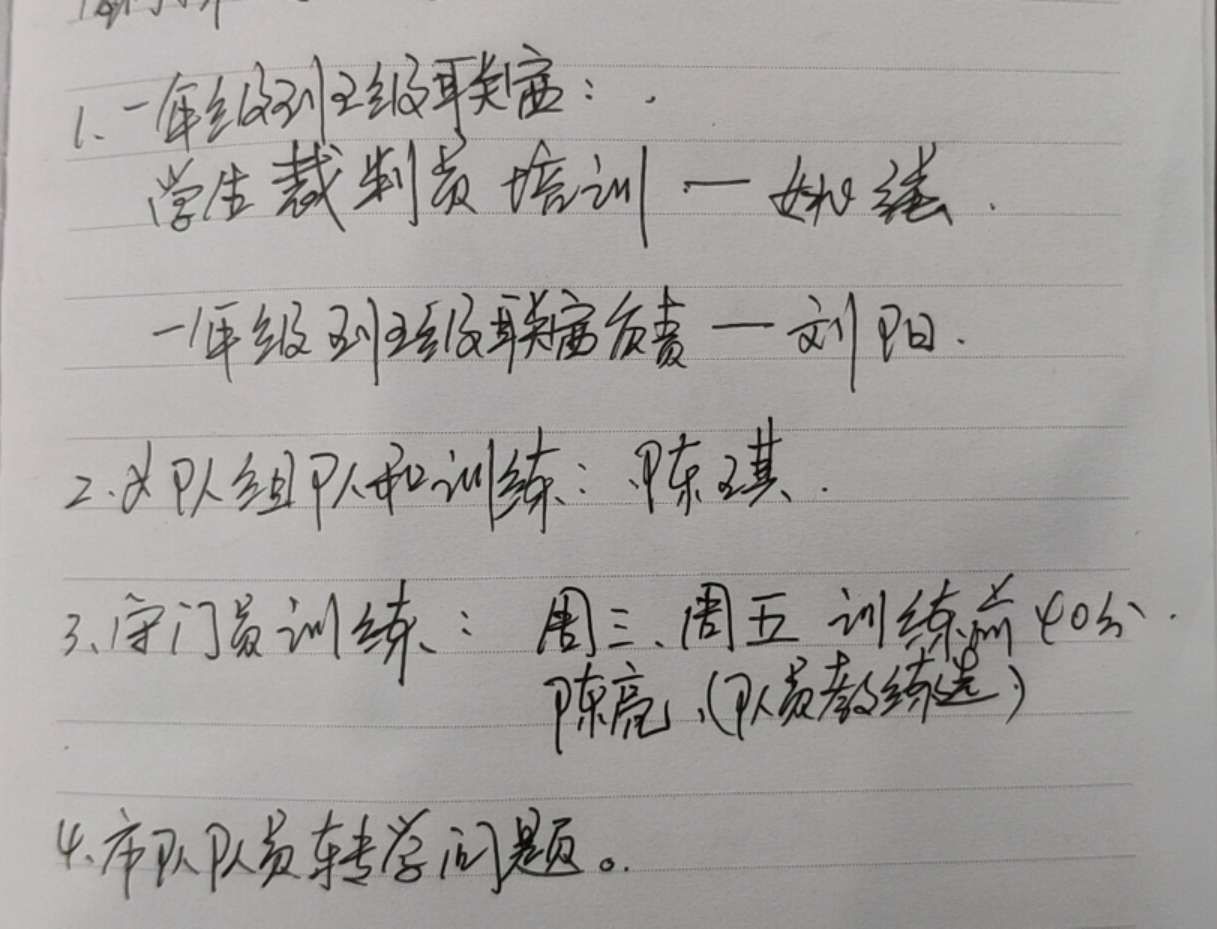 1、一年级到五级联赛：
学生裁判员培训 一
一年级到五级联赛负责 一 刘阳.
2.女队组队和训练：陈琪.
3、守门员训练：周三、周五 训练前40分.
陈亮、(队员教练选)
4.市队队员转学问题。